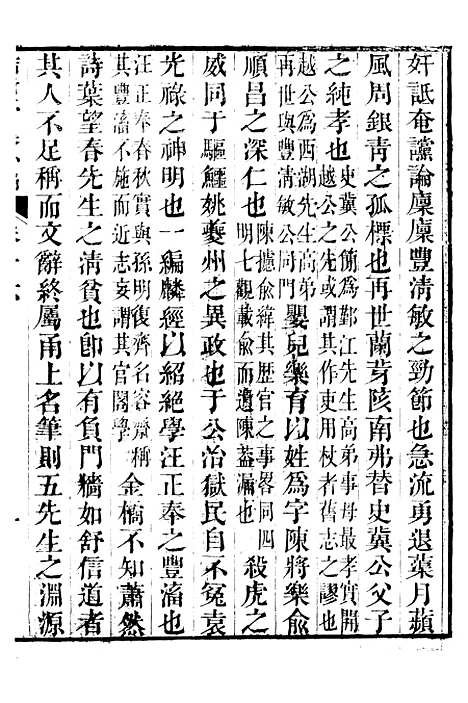 奸詆奄讜論廩廩豐清敏之勁節也急流勇退葉月蘋
風周銀青之孤標也再世蘭芽陔南弗替史冀公父子
之純孝也
史冀公簡為鄞江先生高弟事母最孝實開
越公之先或謂其作吏用杖者舊志之謬也
越公為西湖先生高弟
再世與豐清敏公同門
嬰兒樂育以姓為字陳將樂俞
順昌之深仁也
陳攄俞緯其歷官之事畧同四
明七觀載俞而遺陳蓋漏也
殺虎之
威同于驅鱷姚夔州之異政也于公治獄民自不冤袁
光祿之神明也一編麟經以紹絕學汪正奉之豐溎也
汪正奉春秋實與孫明復齊名容齋稱
其豐溎不施而志妄謂其官閣學
金橋不知蕭然
詩葉望春先生之清貧也卽以有負門牆如舒信道者
其人不足稱而文辭終屬甬上名筆則五先生之淵源